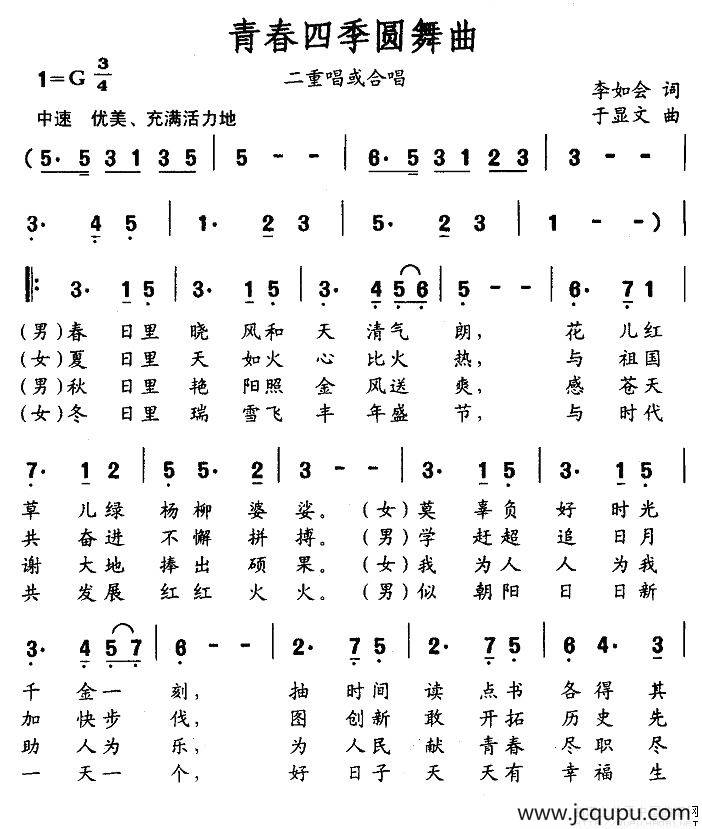 青春四季圆舞曲
1=G 3/4
二重唱或合唱
李如会 词
中速 优美、充满活力地
于显文 曲
(5· 5 3 1 3 5 | 5 - - | 6· 5 3 1 2 3 | 3 - - |
3· 4 5 | 1· 2 3 | 5· 2 3 | 1 - - ) |
‖: 3· 1 5 | 3· 1 5 | 3· 4 5 6 | 5 - - | 6· 7 1 |
(男)春 日里 晓 风和 天 清气 朗, 花 儿红
(女)夏 日里 天 如火 心 比火 热, 与 祖国
(男)秋 日里 艳 阳照 金 风送 爽, 感 苍天
(女)冬 日里 瑞 雪飞 丰 年盛 节, 与 时代
7· 1 2 | 5 5· 2 | 3 - - | 3· 1 5 | 3· 1 5 |
草 儿绿 杨柳 婆 娑。 (女)莫 辜负 好 时光
共 奋进 不懈 拼 搏。 (男)学 赶超 追 日月
谢 大地 捧出 硕 果。 (女)我 为人 人 为我
共 发展 红红 火 火。 (男)似 朝阳 日 日新
3· 4 5 7 | 6 - - | 2· 7 5 | 2· 7 5 | 6 4· 3 |
千 金一 刻, 抽 时间 读 点书 各得 其
加 快步 伐, 图 创新 敢 开拓 历史 先
助 人为 乐, 为 人民 献 青春 尽职 尽
一 天一 个, 好 日子 天 天有 幸福 生
www.jcqupu.com